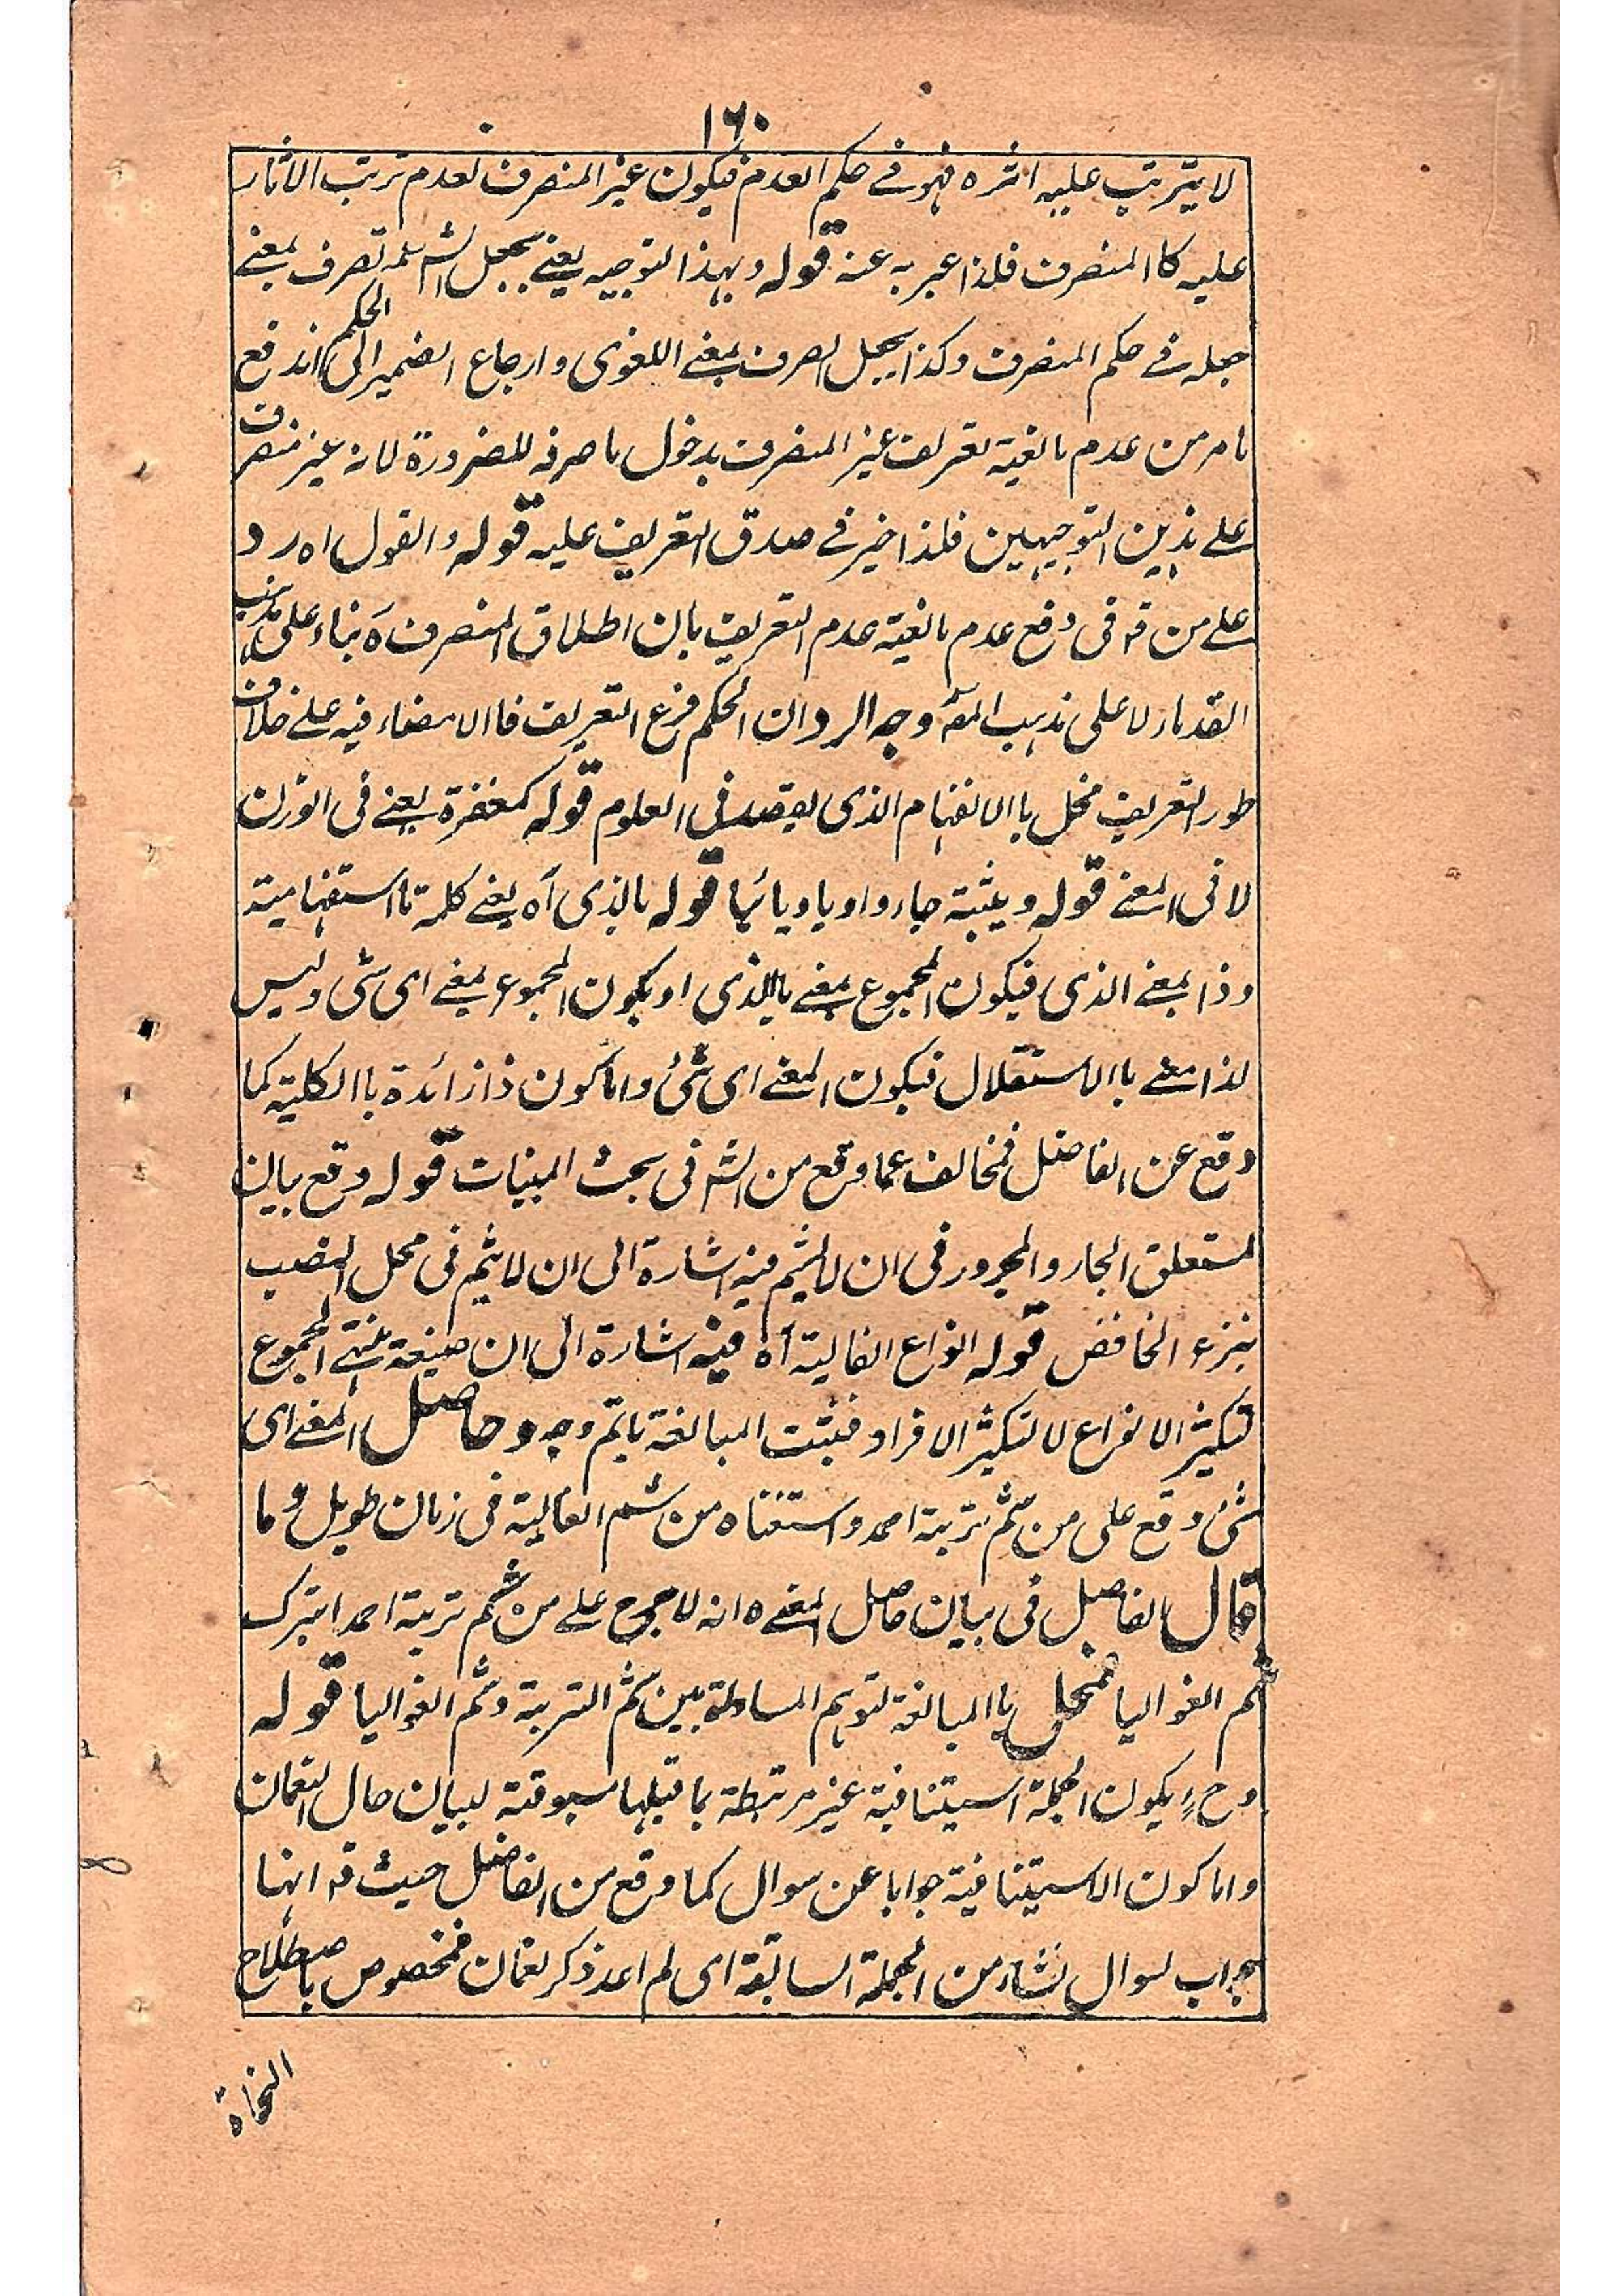 ١٦٠
لا يترتب عليه اثره فهو فے حكم العدم فيكون غير المنصرف لعدم ترتب الاثار
عليه كا المنصرف فلذا عبر به عنه قوله وبهذا التوجيه يعنے بجعل الشم تصرف بمعنے
جعله فے حكم المنصرف وكذا بجعل الصرف بمعنے اللغوى وارجاع الضمير الى الحكم اندفع
ما مر من عدم مانعية تعريف غير المنصرف بدخول ما صرفه للضرورة لانه غير منصرف
علے هذين التوجيهين فلذا خير فے صدق التعريف عليه قوله والقول اه رد
علے من قه فى دفع عدم مانعية عدم التعريف بان اطلاق المنصرف آه بناء على مذهب
القدماء لا على مذهب المصؔ وجه الرد ان الحكم فرع التعريف فاالامضاء فيه علے خلاف
طور التعريف مخل باالانفهام الذى يقصد فى العلوم قوله كمغفرة يعنے فى الوزن
لا فى المعنے قوله وغيبة جاء واويا ويائيا قوله ما الذى آه يعنے كلمة ما استفهامية
وذا بمعنے الذى فيكون المجموع بمعنے ماالذى او يكون المجموع بمعنے اى شئ وليس
لذا معنے باالاستقلال فيكون المعنے اى شئ واما كون ذا زائدة باالكلية كما
وقع عن الفاضل فمخالف عما وقع من الشه فى بحث المبنيات قوله وقع بيان
لمتعلق الجار والمجرور فى ان لا يشم فيه اشارة الى ان لا يشم فى محل النصب
بنزع الخافض قوله انواع الغالية آه فيه اشارة الى ان صيغة منتهے الجموع
لتكثير الانواع لا لتكثير الافراد فيثبت المبالغة باتم وجه وحاصل المعنے اى
شئ وقع على من شم تربة احمد واستغناه من شم الغالية فى زمان طويل وما
قال الفاضل فى بيان حاصل المعنے ه انه لا حرج علے من شم تربة احمد ابترك
شم الغواليا فمخل باالمبالغة لتوهم المساواة بين شم التربة وشم الغواليا قوله
وح يكون الجملة استينافية غير مرتبطة بما قبلها مسوقة لبيان حال النعمان
واما كون الاستينافية جوابا عن سوال كما وقع من الفاضل حيث قه انها
جواب لسوال نشاء من الجملة السابقة اى لم اعد ذكر نعمان فمخصوص باصطلاح
النحاة